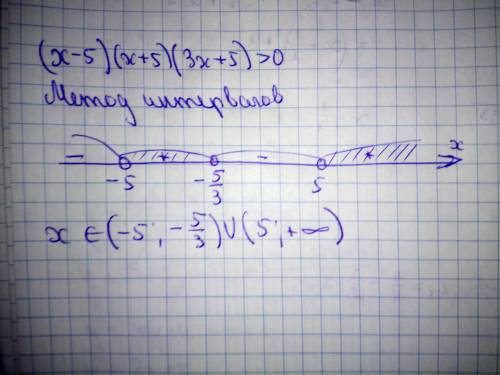 (x-5)(x+5)(3x+5)>0
Метод интервалов
- + - + x
-5 -5/3 5
x ∈ (-5; -5/3) ∪ (5; +∞)